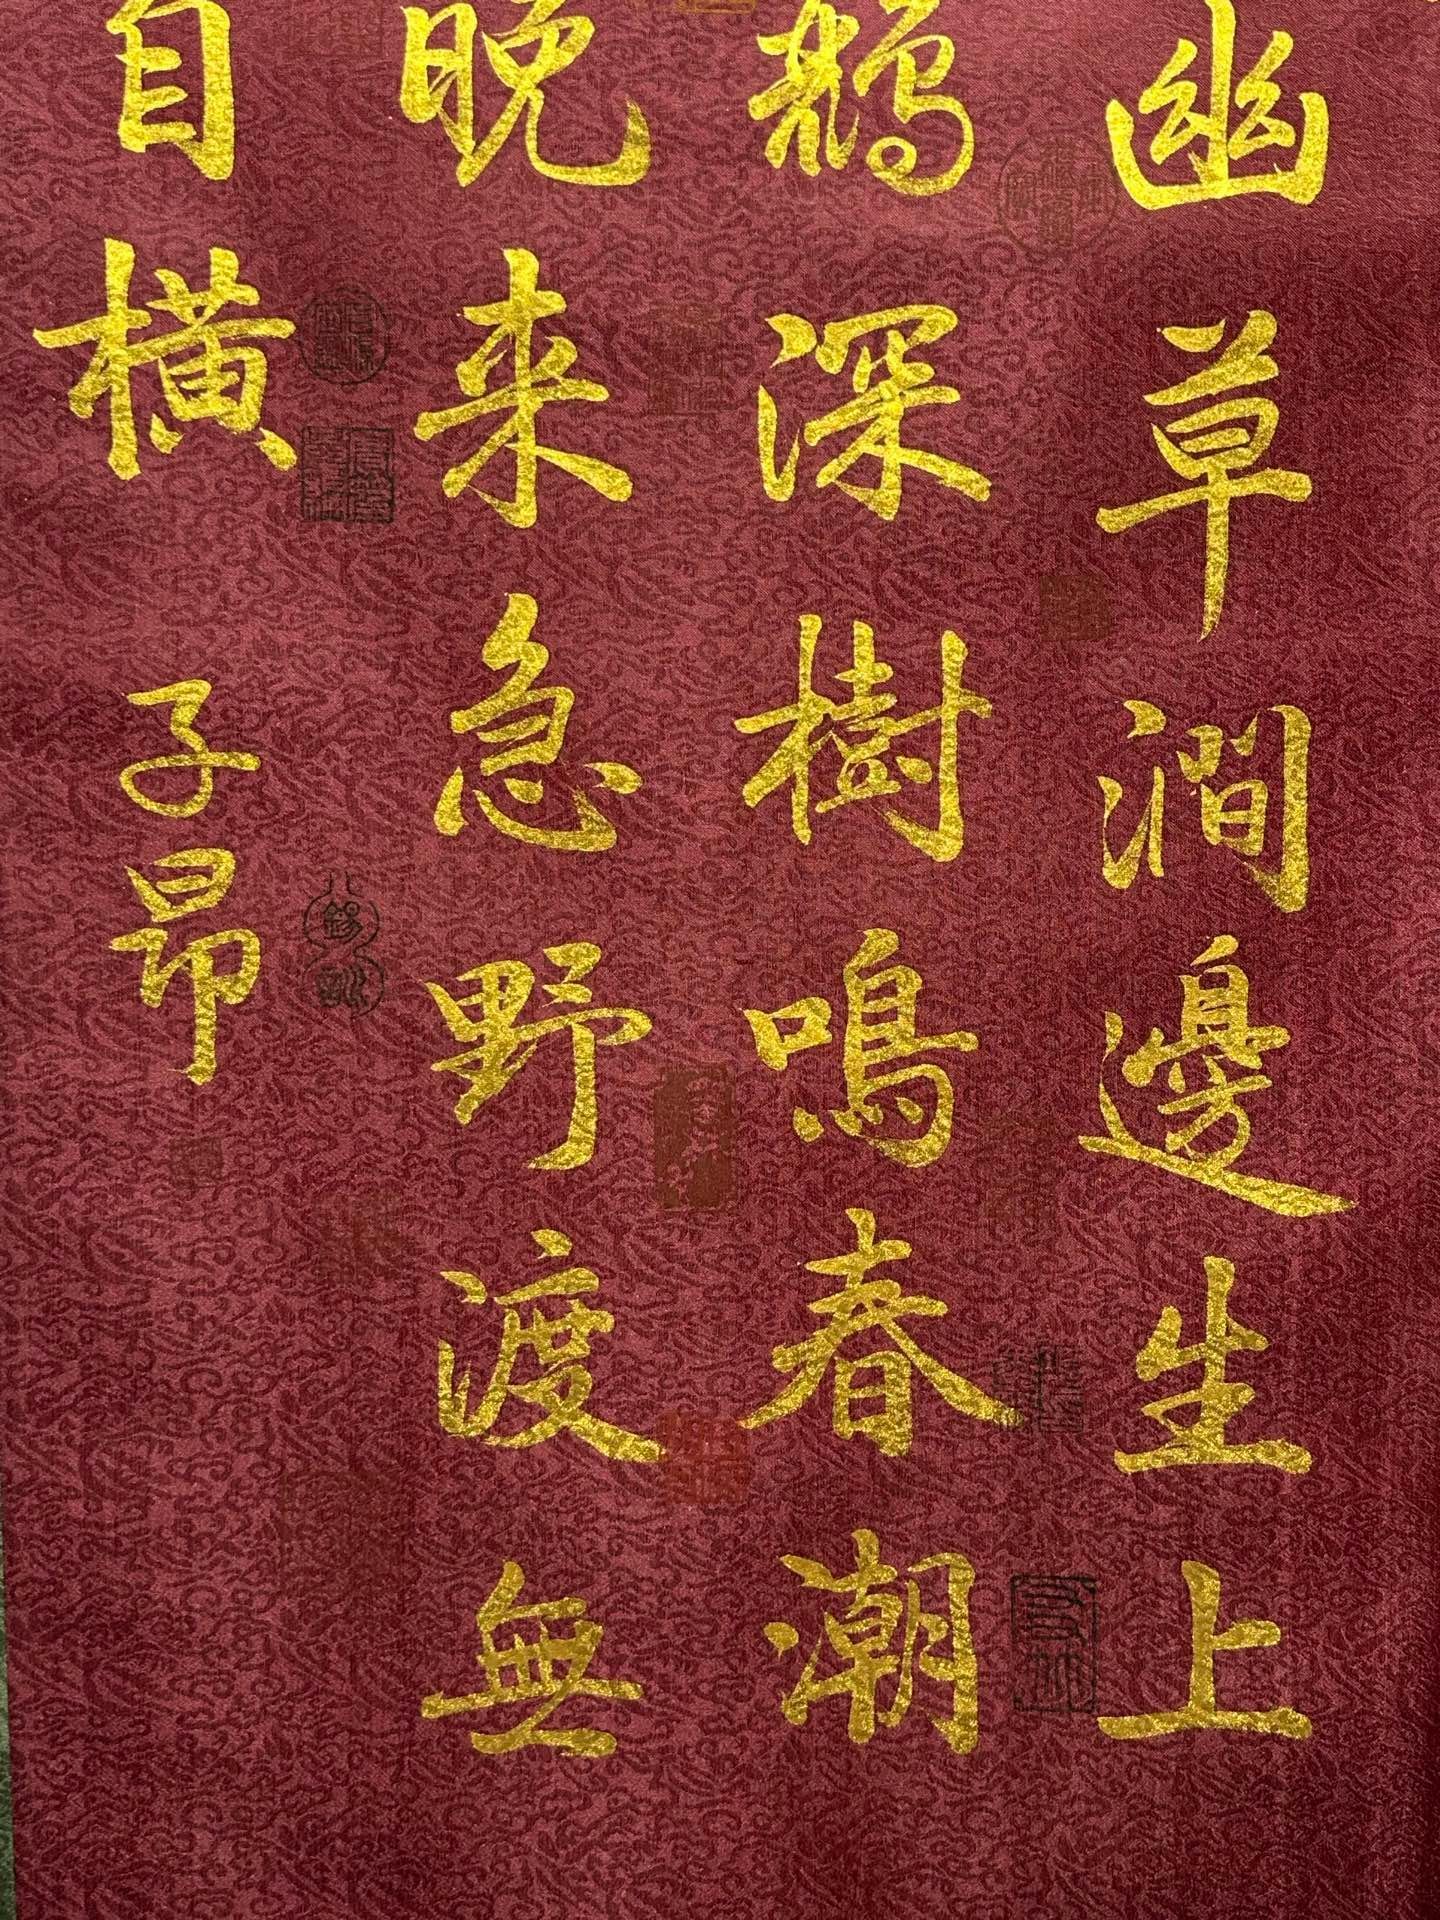 幽草澗邊生上
鸝深樹鳴春潮
晚来急野渡無
自横
子昂